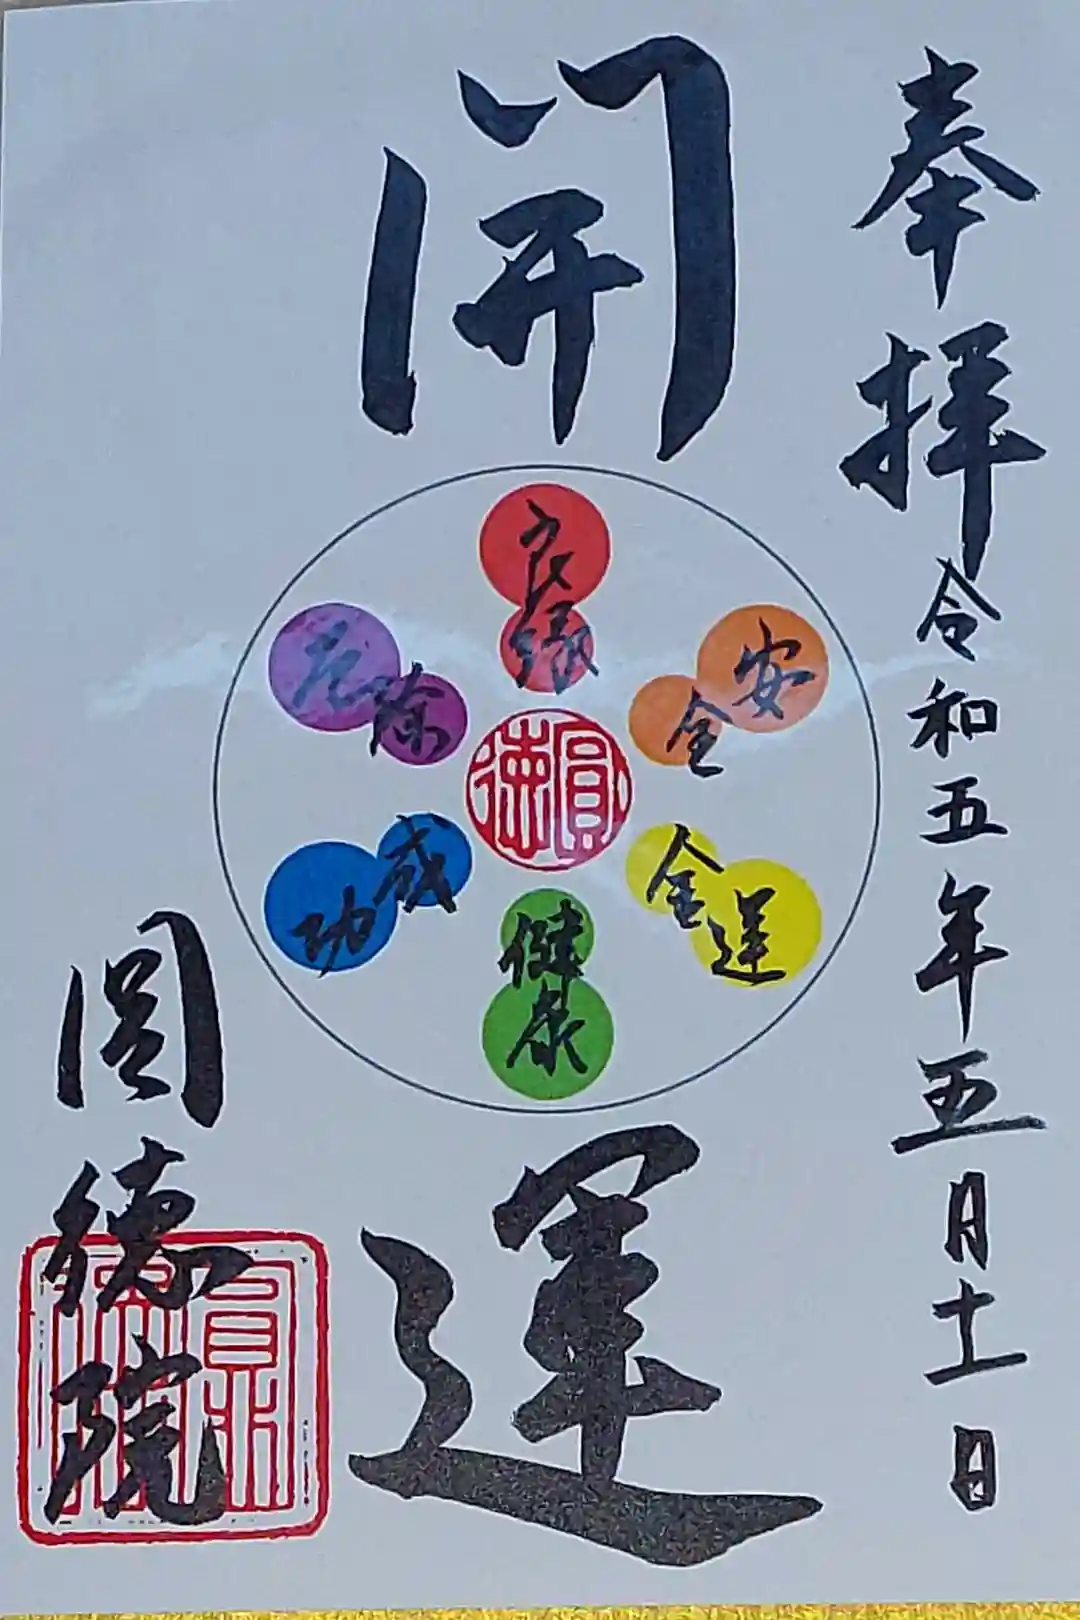 奉拝
令和五年五月十一日
開
良縁
安全
金運
健康
成功
厄除
圓徳
運
圓徳院